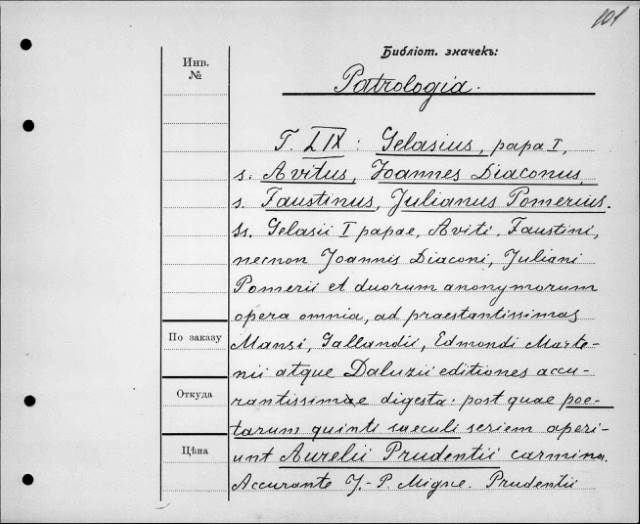 101
Библіот. значекъ:
Инв.
№
Patrologia.
T. LIX: Gelasius, papa I,
s. Avitus, Joannes Diaconus,
s. Faustinus, Julianus Pomerius.
Ss. Gelasii I papae, Aviti, Faustini,
necnon Joannis Diaconi, Juliani
Pomerii et duorum anonymorum
opera omnia, ad praestantissimas
По заказу
Mansi, Gallandii, Edmondi Marte-
nii atque Baluzii editiones accu-
Откуда
rantissimae digesta: post quae poe-
tarum quinti saeculi seriem aperi-
Цѣна
unt Aurelii Prudentii carmina.
Accurante J.-P. Migne. Prudentii